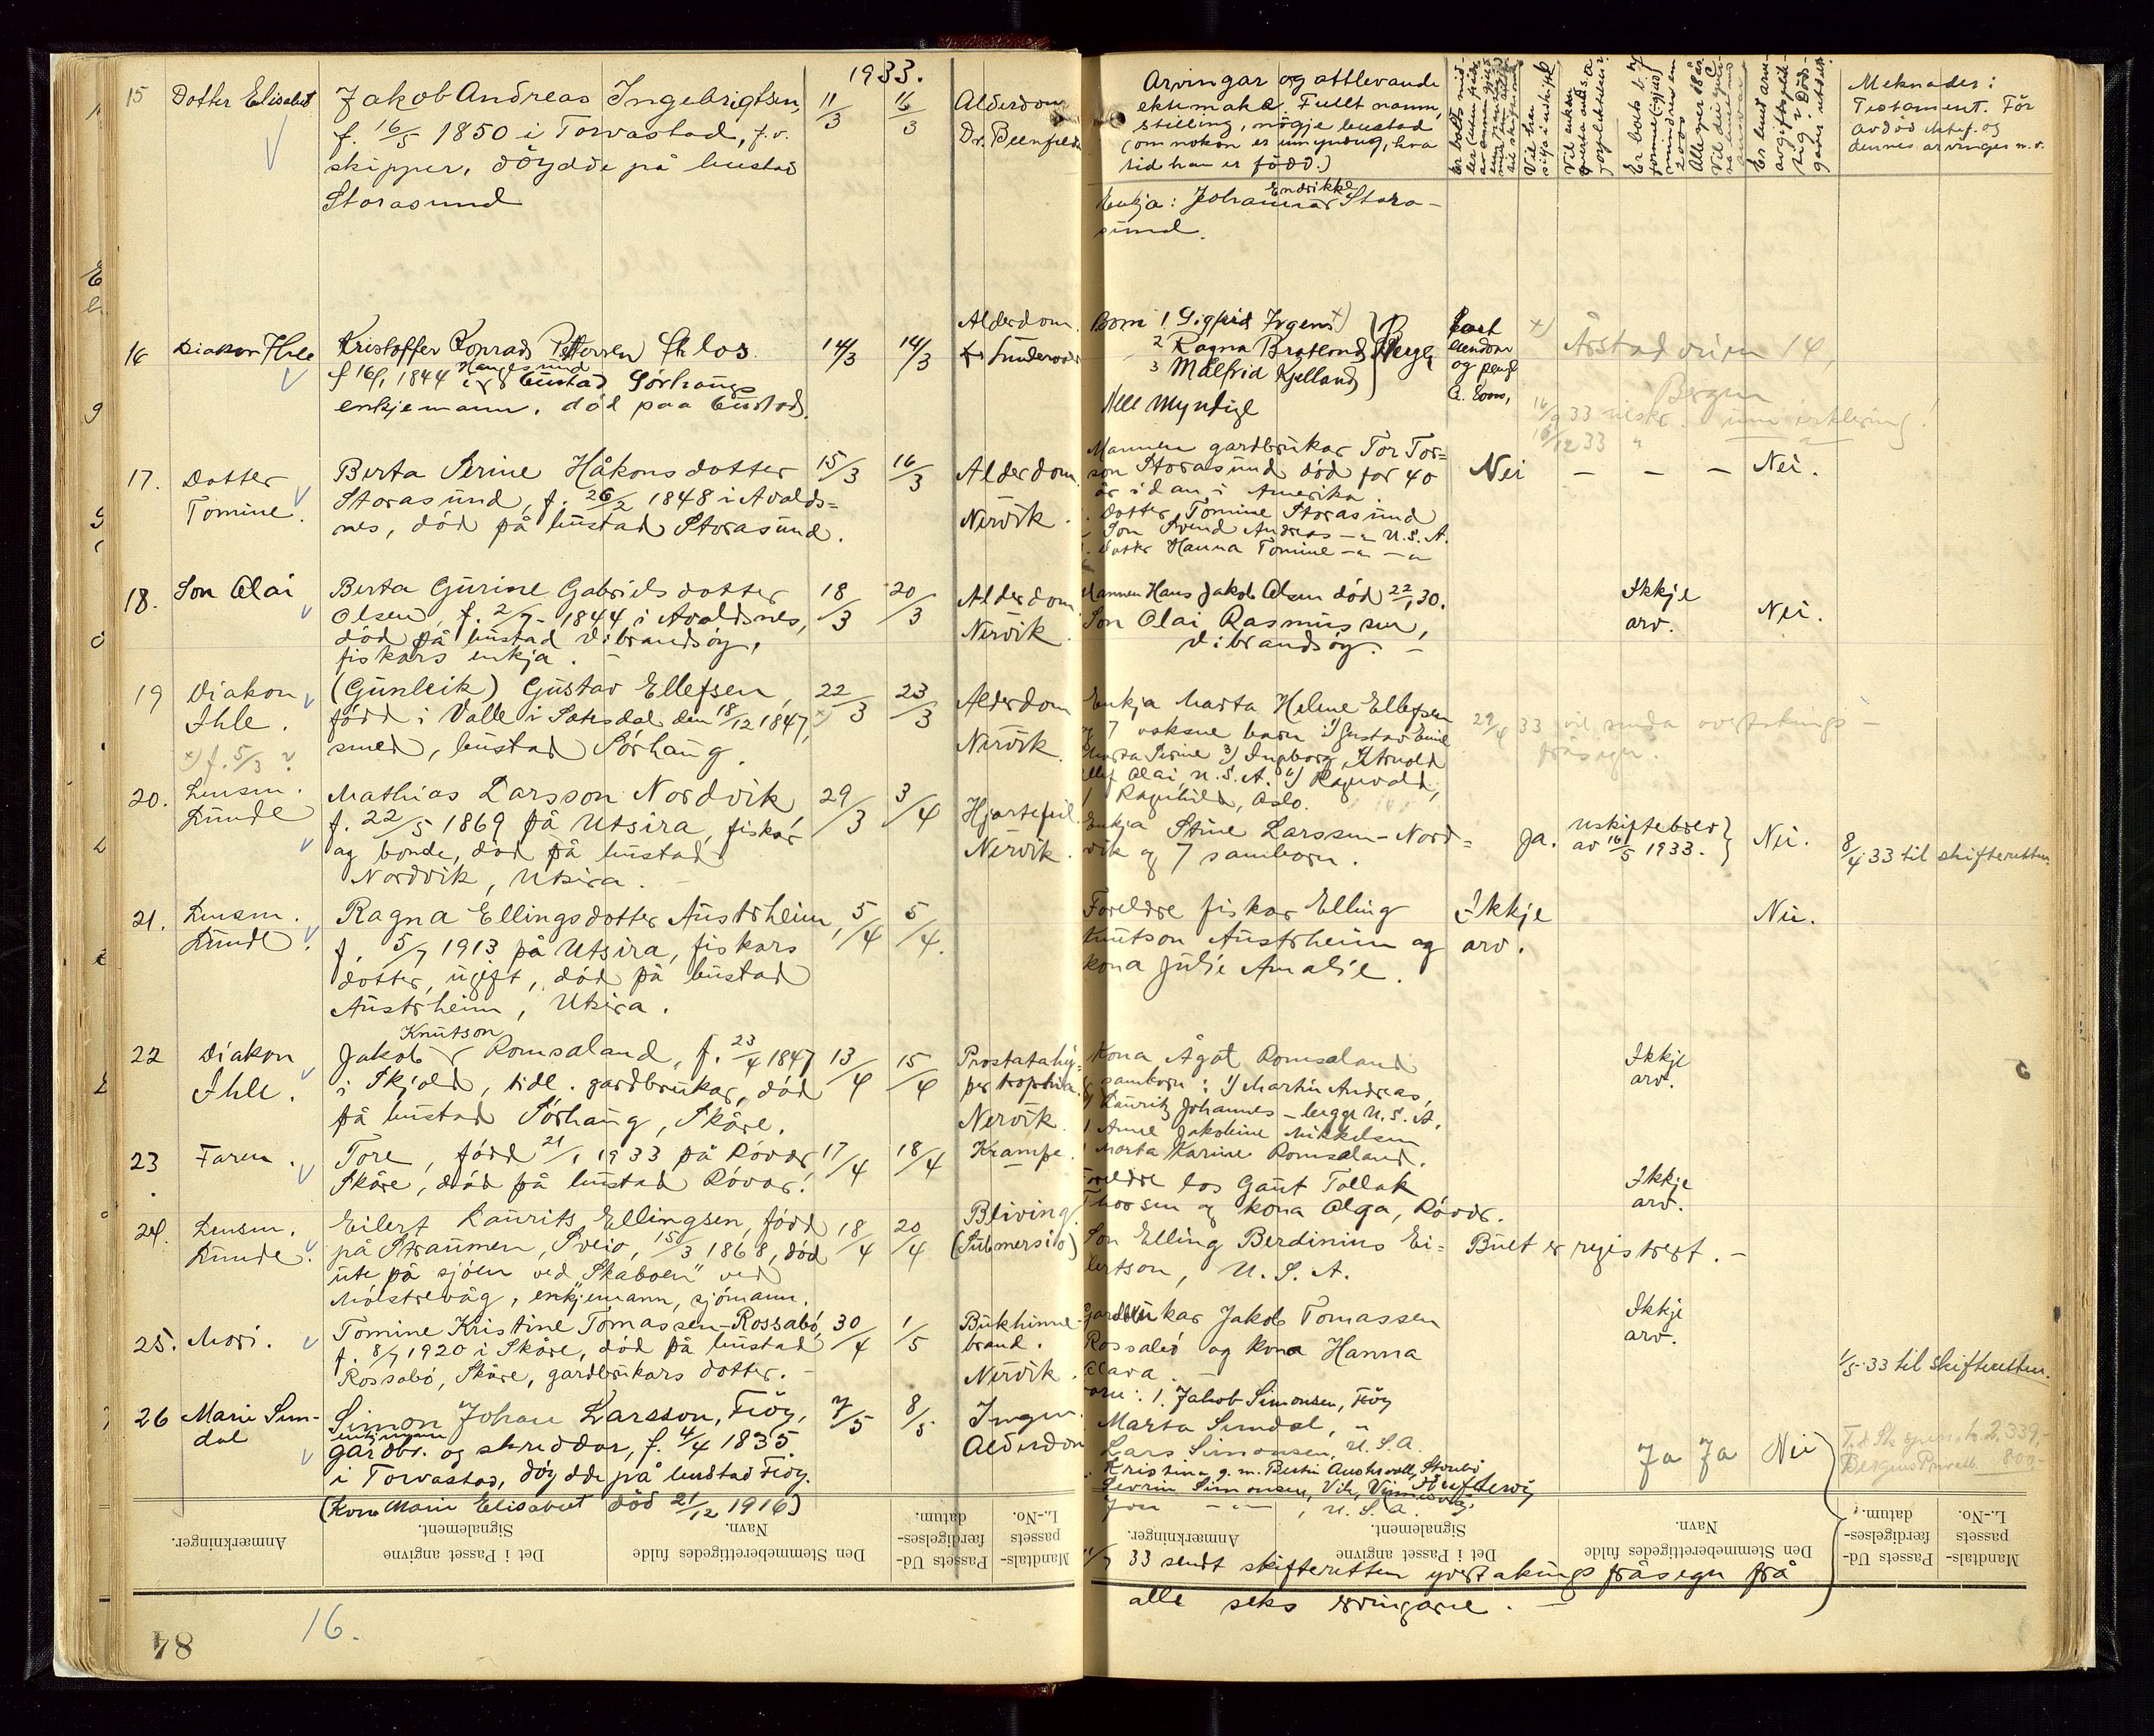 1933.
15 Dotter Elisabet
Jakob Andreas Ingebrigtsen,
f. 16/5 1850 i Torvastad, f.v.
skipper, döydde på bustad
Storasund
11/3
11/3
Alderdom
Dr.
Arvingar og attlevande
ektemake. Fullt namn,
stilling, nögje bustad
(om nokon er umyndug, kva
tid han er född.)
Meknader:
Testament. För
avdöd ektef. og
dennes arvinger m.v.
Enkja: Johanna Endrikke Stora-
sund.
16 Diakon Ihle
Kristoffer Konrad Pettersen fh los
f 16/1 1844 i Haugesund bustad Sörhaug
enkjemann. död paa bustad.
14/3
14/3
Alderdom.
Born 1 Sigfrid Irgens x)
2 Ragna Bratland
3 Målfrid Kjelland
Alle Myndige
Fast
eiendom
og peng
x) Årstadveien 14,
Bergen
17. Dotter
Tomine.
Berta Serine Håkonsdotter
Storasund, f. 26/2 1848 i Avalds=
nes, död på bustad Storasund.
15/3
16/3
Alderdom.
Nervik.
Mannen gardbrukar Tor Tor=
son Storasund död for 40
år sidan i Amerika.
Dotter Tomine Storasund
Son Svend Andreas -"- U.S.A.
Dotter Hanna Tomine -"- -"-
Nei - - - Nei.
18. Son Olai
Berta Gurine Gabrielsdotter
Olsen, f. 2/7- 1844 i Avaldsnes,
död på bustad Vibrandsöy,
fiskars enkja. -
18/3
20/3
Alderdom.
Nervik.
Mannen Hans Jakob Olsen död 22/1 30.
Son Olai Rasmussen,
Vibrandsöy. -
Ikkje
arv.
Nei.
19 Diakon
Ihle.
x) f. 5/3 ?
(Gunleik) Gustav Ellefsen,
född i Valle i Setesdal den 18/12 1847,
smed, bustad Sörhaug.
22/3
x)
23/3
Alderdom
Nervik.
Enkja Marta Helene Ellefsen
og 7 vaksne barn 1) Gustav Emil
Marta Serine 3) Ingborg, Arnold
Ellef Olai, U.S.A. 6) Ragnvald,
Ragnhild, Oslo.
29/4 33 vil senda overtakings-
fråsegn.
20. Lensm.
Lunde
Mathias Larsson Nordvik,
f. 22/5 1869 på Utsira, fiskar
og bonde, död på bustad
Nordvik, Utsira. -
29/3
3/4
Hjartefeil.
Nervik.
Enkja Stine Larssen-Nord=
vik og 7 samborn.
Ja.
Uskiftebrev
av 16/5 1933.
Nei.
8/4 33 til skifteretten.
21. Lensm.
Lunde.
Ragna Ellingsdotter Austrheim,
f. 5/7 1913 på Utsira, fiskars
dotter, ugift, död på bustad
Austrheim, Utsira.
5/4
5/4.
Foreldre fiskar Elling
Knutson Austrheim og
kona Julie Amalie.
Ikkje
arv.
Nei.
22 Diakon
Ihle.
Jakob Knutson Romsaland, f. 23/4 1847
i Skjold, tidl. gardbrukar, död
på bustad Sörhaug, Skåre.
13/4
15/4
Prostatahy=
pertrophia.
Nervik.
Kona Ågot Romsaland
samborn: 1) Martin Andreas,
Lauritz Johannes - begge U.S.A.
Anne Jakobine Mikkelsen
Marta Karine Romsaland.
Ikkje
arv.
23 Faren.
Tore, född 21/1 1933 på Rövær,
Skåre, död på bustad Rövær.
17/4
18/4
Krampe.
Foreldre los Gaut Tollak
Thorsen og kona Olga, Rövær.
Ikkje
arv.
24. Lensm.
Lunde.
Eilert Laurits Ellingsen, född
på Straumen, Sveio, 15/3 1868, död
ute på sjöen ved "Skaboen" ved
Mölstrevåg, enkjemann, sjömann.
18/4
20/4
Bliving.
(Submersio)
Son Elling Berdinius Ei=
lertson, U.S.A.
Buet er registrert. -
25. Mori.
Tomine Kristine Tomassen-Rossabö,
f. 8/7 1920 i Skåre, död på bustad
Rossabö, Skåre, gardbrukars dotter. -
30/4
1/5
Bukhinne-
brand.
Nervik.
Gardbrukar Jakob Tomassen
Rossabö og kona Hanna
Clara. -
Ikkje
arv.
1/5-33 til skifteretten.
26 Marie Sun-
dal
Simon Johan Larsson, Fiöy,
enkjemann
gardbr. og skreddar, f. 4/4 1835
i Torvastad, döydde på bustad Fiöy.
(Kona Marie Elisabet död 21/12 1916)
7/5
8/5
Ingen.
Alderdom
Born: 1. Jakob Simonsen, Fiöy
Marta Sundal, "
Lars Simonsen, U.S.A.
Kristina g.m. Bertin Austrvoll, Storebö
Severin Simonsen, Vik,
U.S.A.
Ja Ja Nei
2.339,-
Bergens Privatb. 800,-
Anmærkninger.
Det i Passet angivne
Signalement.
Den Stemmeberettigedes fulde
Navn.
Passets Ud-
færdigelses-
datum.
Mandtals-
passets
L.-No.
Anmærkninger.
Det i Passet angivne
Signalement.
Den Stemmeberettigedes fulde
Navn.
Passets Ud-
færdigelses-
datum.
Mandtals-
passets
L.-No.
33 sendt skifteretten yvertakings fråsegn frå
alle seks ervingarne. -
84
16.